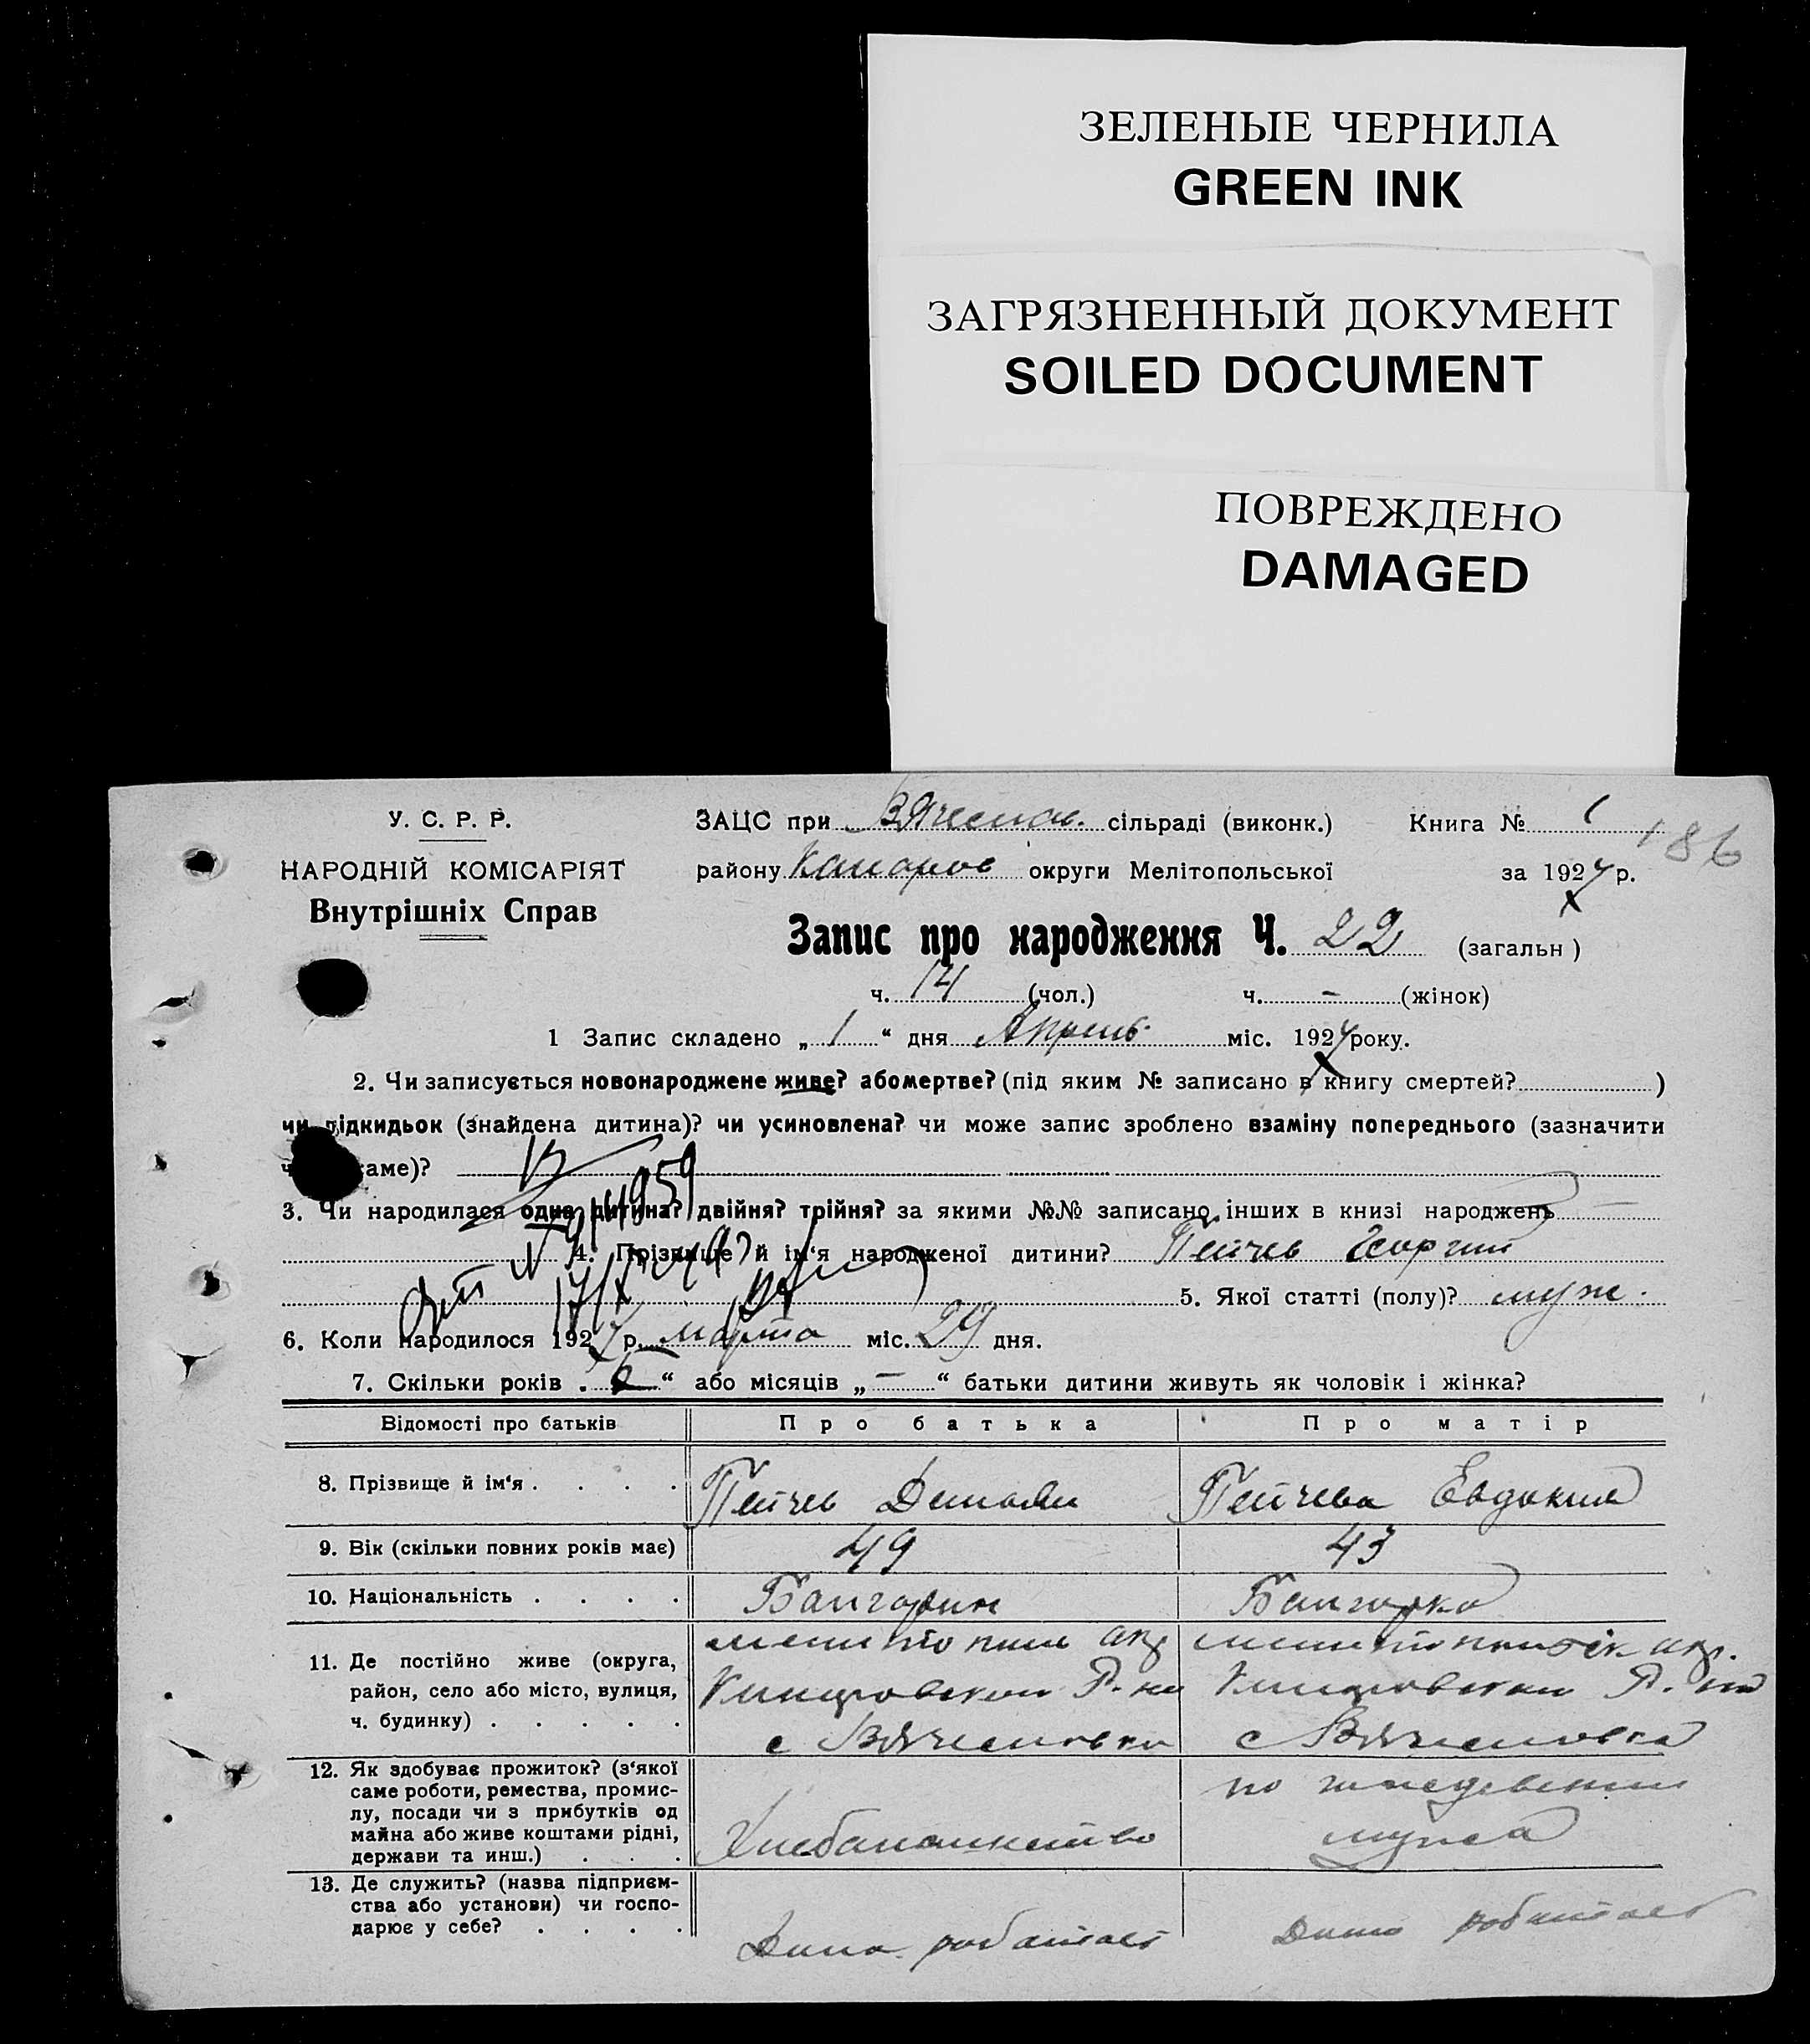 ЗЕЛЕНЫЕ ЧЕРНИЛА
GREEN INK
ЗАГРЯЗНЕННЫЙ ДОКУМЕНТ
SOILED DOCUMENT
ПОВРЕЖДЕНО
DAMAGED
У. С. Р. Р.
НАРОДНІЙ КОМІСАРІЯТ
Внутрішніх Справ
ЗАЦС при Вячеслов. сільраді (виконк.) Книга № 1
186
району округи Мелітопольської за 1924 р.
Запис про народження Ч. 22 (загальн)
ч. 14 (чол.) ч. - (жінок)
1 Запис складено „ 1 “ дня Апрель міс. 1924 року.
2. Чи записується новонароджене живе? або мертве? (під яким № записано в книгу смертей? )
чи підкидьок (знайдена дитина)? чи усиновлена? чи може запис зроблено взаміну попереднього (зазначити
саме)?
3. Чи народилася одна дитина? двійня? трійня? за якими №№ записано інших в книзі народжень —
4. Прізвище й ім‘я народженої дитини? Пейчев Георгий
5. Якої статті (полу)? муж.
6. Коли народилося 192 р. марта міс. 29 дня.
7. Скільки років „ “ або місяців „ — “ батьки дитини живуть як чоловік і жінка?
Відомості про батьків Про батька Про матір
8. Прізвище й ім‘я . . . . Пейчев Демьян Пейчева Евдокия
9. Вік (скільки повних років має) 49 43
10. Національність . . . . Балгарин Балгарка
11. Де постійно живе (округа,
район, село або місто, вулиця,
ч. будинку) . . . . .
с Вячесловка с Вячесловка
12. Як здобуває прожиток? (з‘якої
саме роботи, ремества, промис-
лу, посади чи з прибутків од
майна або живе коштами рідні,
держави та инш.) . . .
Хлебапашество
на иждевении
мужа
13. Де служить? (назва підприєм-
ства або установи) чи госпо-
дарює у себе? . . . .
Дома работает Дома работает